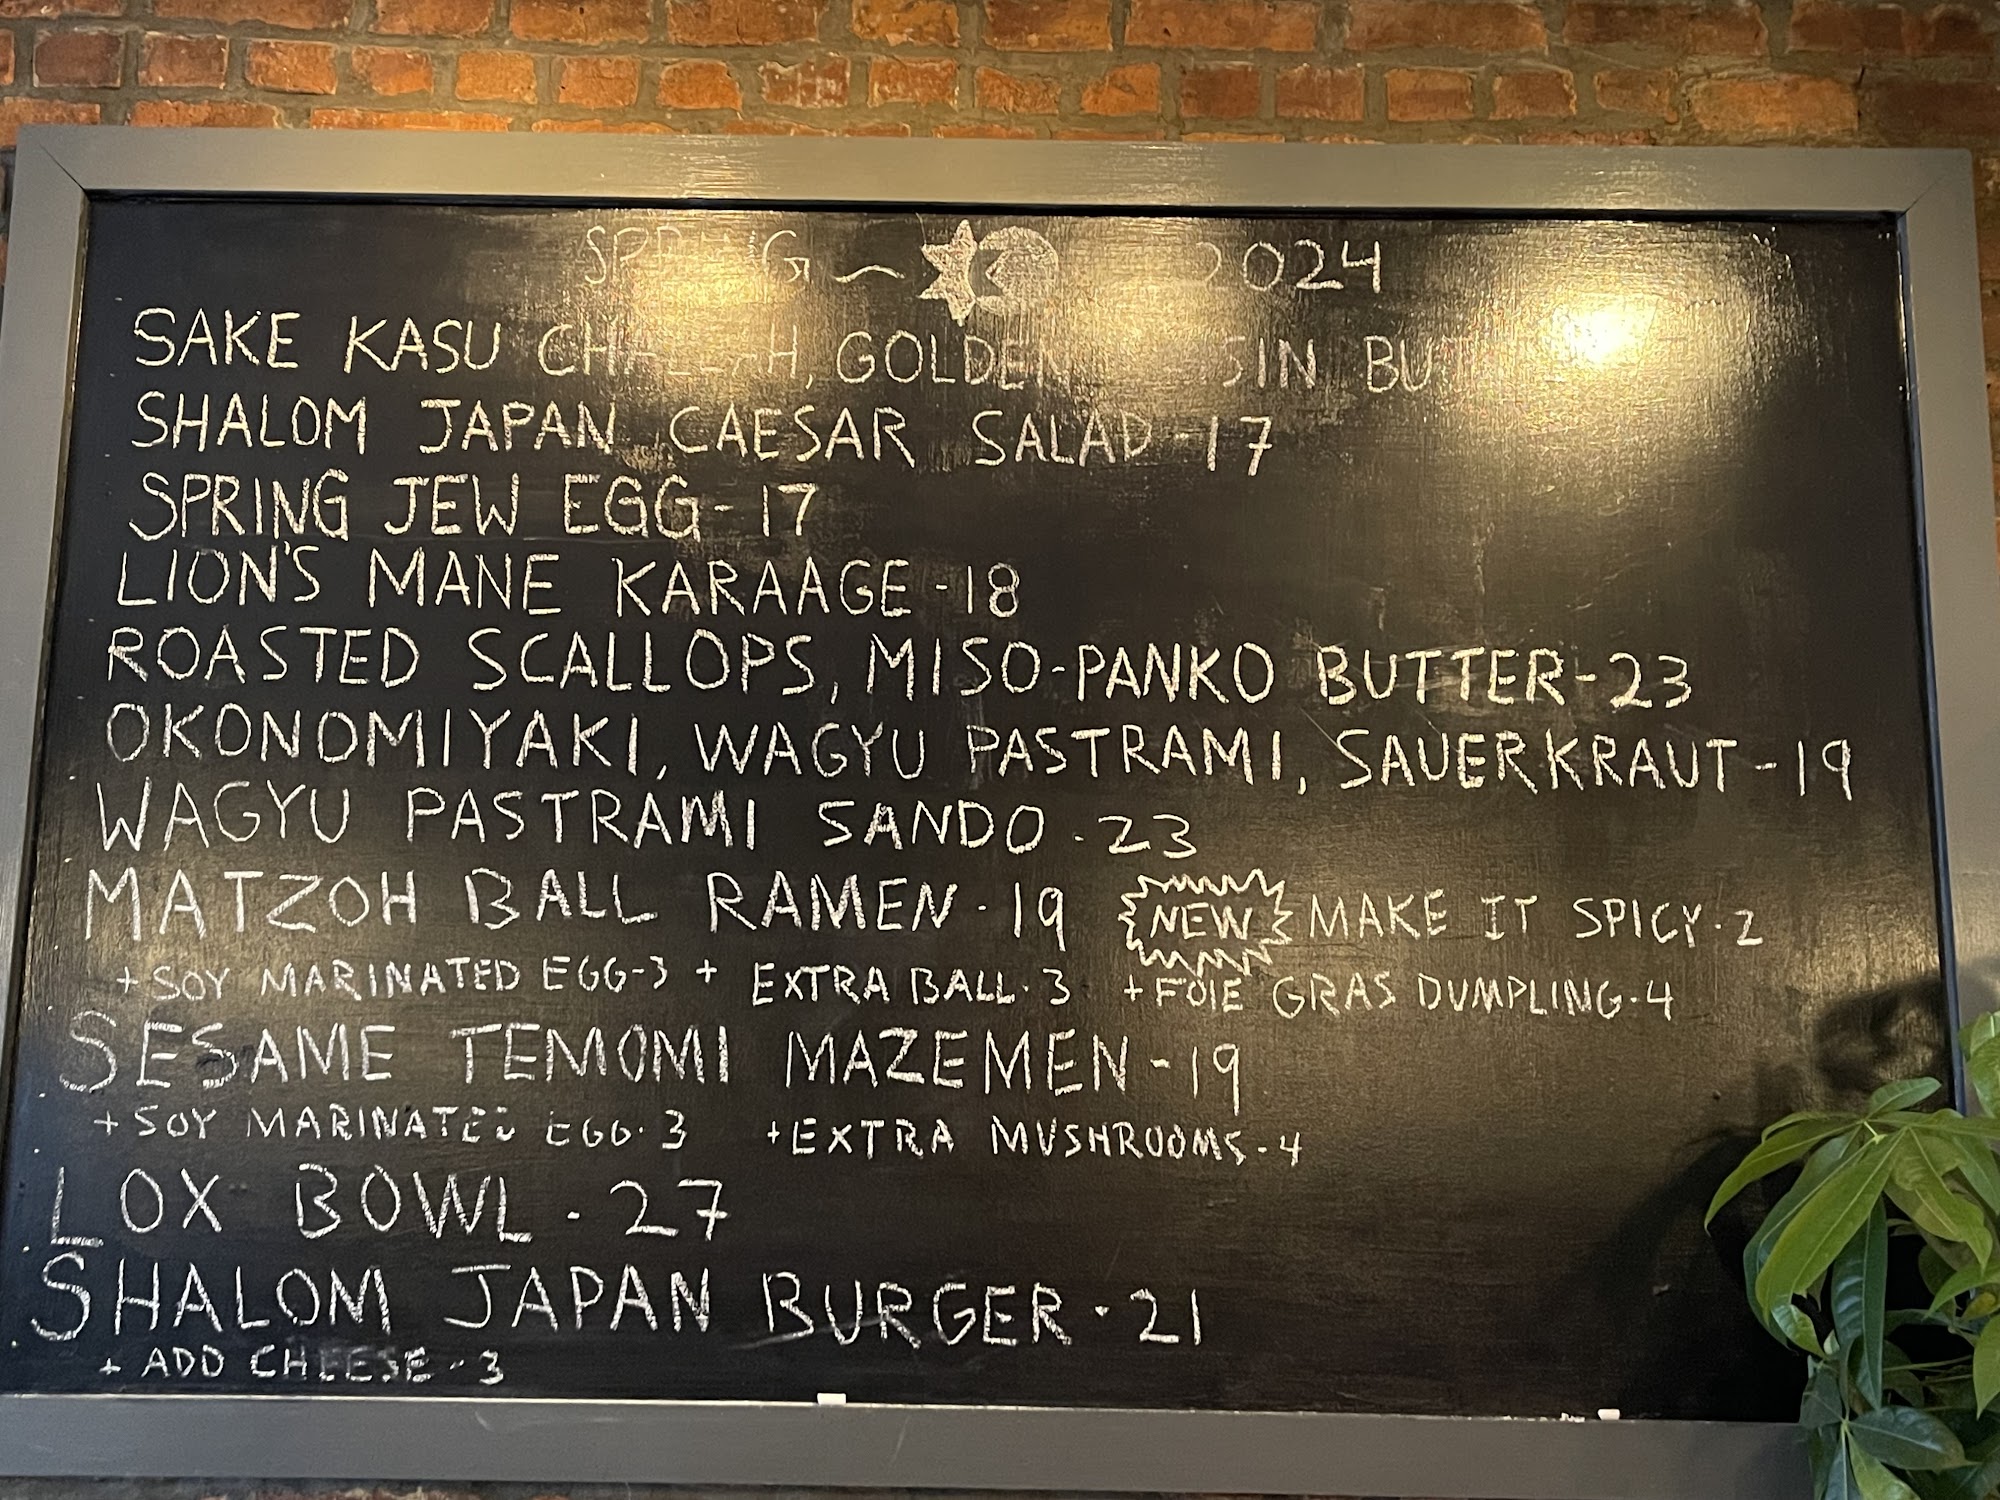 SPRING ~ 2024
SAKE KASU CHALLAH, GOLDEN BUT
SHALOM JAPAN CAESAR SALAD - 17
SPRING JEW EGG - 17
LION'S MANE KARAAGE - 18
ROASTED SCALLOPS, MISO-PANKO BUTTER - 23
OKONOMIYAKI, WAGYU PASTRAMI, SAUERKRAUT - 19
WAGYU PASTRAMI SANDO - 23
MATZOH BALL RAMEN - 19 NEW MAKE IT SPICY - 2
+ SOY MARINATED EGG - 3 + EXTRA BALL - 3 + FOIE GRAS DUMPLING - 4
SESAME TEMOMI MAZEMEN - 19
+ SOY MARINATED EGG - 3 + EXTRA MUSHROOMS - 4
LOX BOWL - 27
SHALOM JAPAN BURGER - 21
+ ADD CHEESE - 3